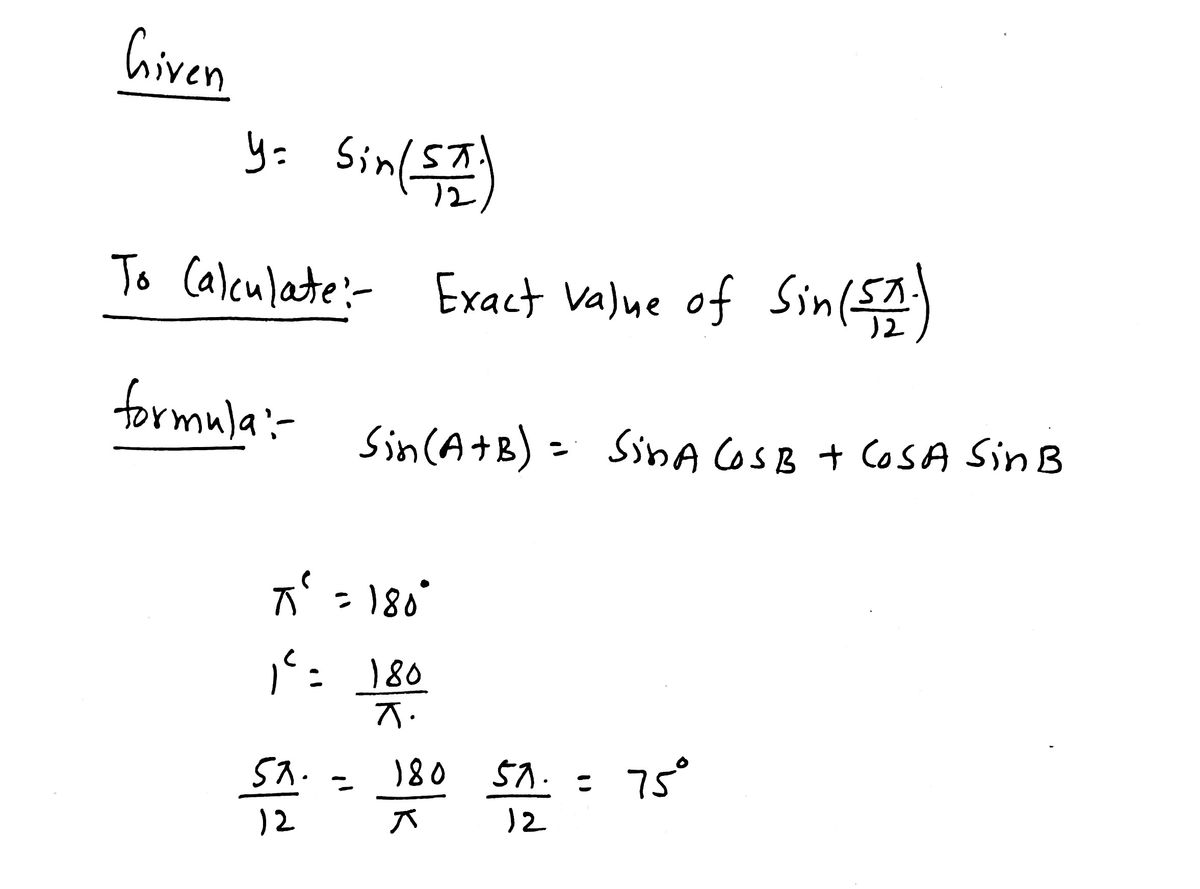 Given
y = Sin(5π/12)
To Calculate:- Exact Value of Sin(5π/12)
formula:- Sin(A+B) = SinA CosB + CosA SinB
π^c = 180°
1^c = 180/π.
5π/12 = 180/π 5π/12 = 75°